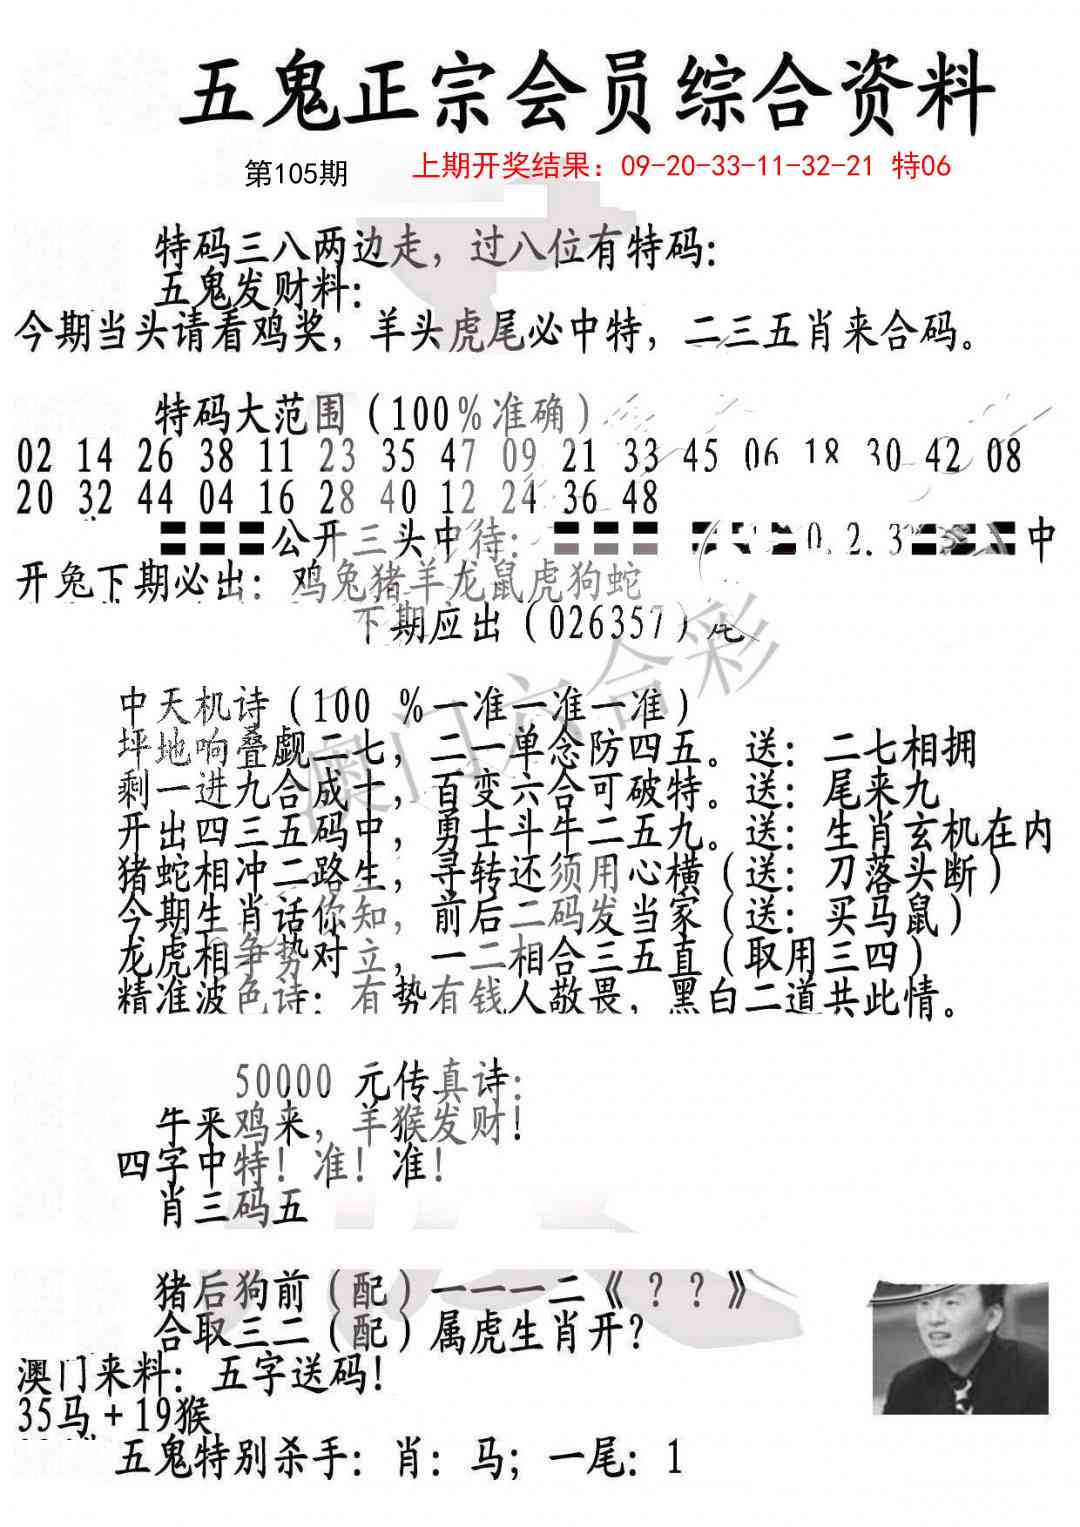 五鬼正宗会员综合资料
第105期 上期开奖结果：09-20-33-11-32-21 特06
特码三八两边走，过八位有特码：
五鬼发财料：
今期当头请看鸡奖，羊头虎尾必中特，二三五肖来合码。
特码大范围（100%准确）
02 14 26 38 11 23 35 47 09 21 33 45 06 18 30 42 08
20 32 44 04 16 28 40 12 24 36 48
公开三头中待： 0.2.3 中
开兔下期必出：鸡兔猪羊龙鼠虎狗蛇
下期应出（026357）尾
澳门六合彩
中天机诗（100 %一准一准一准）
坪地响叠觑二七，二一单念防四五。送：二七相拥
剩一进九合成十，百变六合可破特。送：尾来九
开出四三五码中，勇士斗牛二五九。送：生肖玄机在内
猪蛇相冲二路生，寻转还须用心横（送：刀落头断）
今期生肖话你知，前后二码发当家（送：买马鼠）
龙虎相争势对立，一二相合三五直（取用三四）
精准波色诗：有势有钱人敬畏，黑白二道共此情。
50000 元传真诗：
牛来鸡来，羊猴发财！
四字中特！准！准！
肖三码五
猪后狗前（配）一一一二《？？》
合取三二（配）属虎生肖开？
澳门来料：五字送码！
35马+19猴
五鬼特别杀手：肖：马；一尾：1